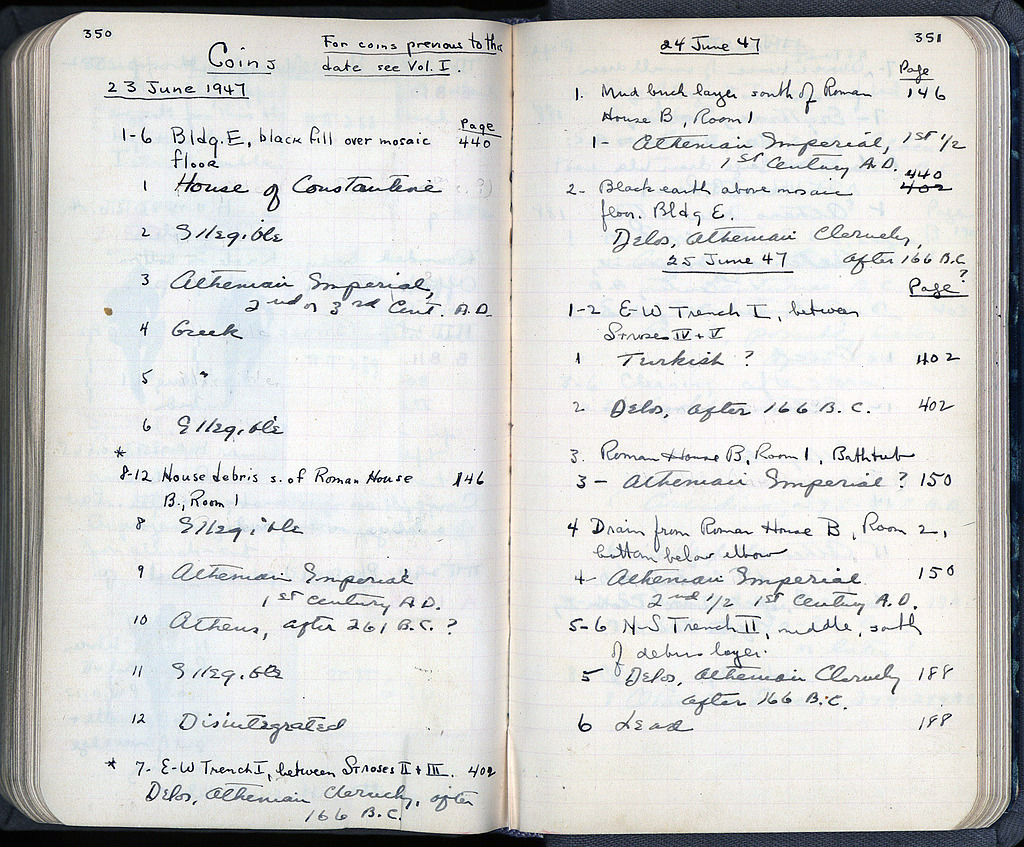 350
Coins
For coins previous to this
date see Vol. I.
23 June 1947
Page
1-6 Bldg. E, black fill over mosaic 440
floor
1 House of Constantine
2 Illegible
3 Athenian Imperial,
2nd or 3rd Cent. A.D.
4 Greek
5 "
6 Illegible
*
8-12 House debris s. of Roman House 146
B., Room 1
8 Illegible
9 Athenian Imperial
1st Century A.D.
10 Athens, after 261 B.C. ?
11 Illegible
12 Disintegrated
* 7. E-W Trench I, between Stroses II + III. 402
Delos, Athenian Cleruchy, after
166 B.C.
351
24 June 47
Page
1. Mud brick layer south of Roman 146
House B, Room 1
1- Athenian Imperial, 1st 1/2
1st Century A.D.
440
2- Black earth above mosaic 402
floor. Bldg E.
Delos, Athenian Cleruchy,
after 166 B.C.
25 June 47
?
Page
1-2 E-W Trench I, between
Stroses IV + V
1 Turkish ? 402
2 Delos, after 166 B.C. 402
3. Roman House B, Room 1, Bathtub
3- Athenian Imperial ? 150
4 Drain from Roman House B, Room 2,
bottom below elbow
4- Athenian Imperial 150
2nd 1/2 1st Century A.D.
5-6 N-S Trench II, middle, south
of debris layer.
5 Delos, Athenian Cleruchy 188
after 166 B.C.
6 Lead 188